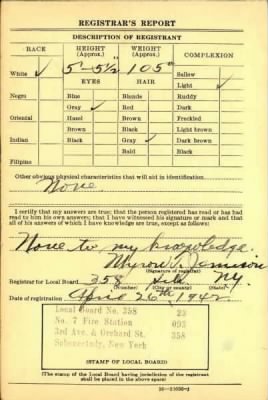 REGISTRAR'S REPORT
DESCRIPTION OF REGISTRANT
RACE HEIGHT (Approx.) WEIGHT (Approx.) COMPLEXION
White ✓ 5'-5½" 105 Sallow
EYES HAIR Light ✓
Negro Blue Blonde Ruddy
Gray ✓ Red Dark
Oriental Hazel Brown Freckled
Brown Black Light brown
Indian Black Gray ✓ Dark brown
Bald Black
Filipino
Other obvious physical characteristics that will aid in identification
None.
I certify that my answers are true; that the person registered has read or has had
read to him his own answers; that I have witnessed his signature or mark and that
all of his answers of which I have knowledge are true, except as follows:
None to my knowledge.
Myron Jamison
(Signature of registrar)
Registrar for Local Board 358 NY.
(Number) (City or county) (State)
Date of registration April 26th 1942
Local Board No. 358 23
No. 7 Fire Station 093
3rd Ave. & Orchard St. 358
Schenectady, New York
(STAMP OF LOCAL BOARD)
(The stamp of the Local Board having jurisdiction of the registrant
shall be placed in the above space)